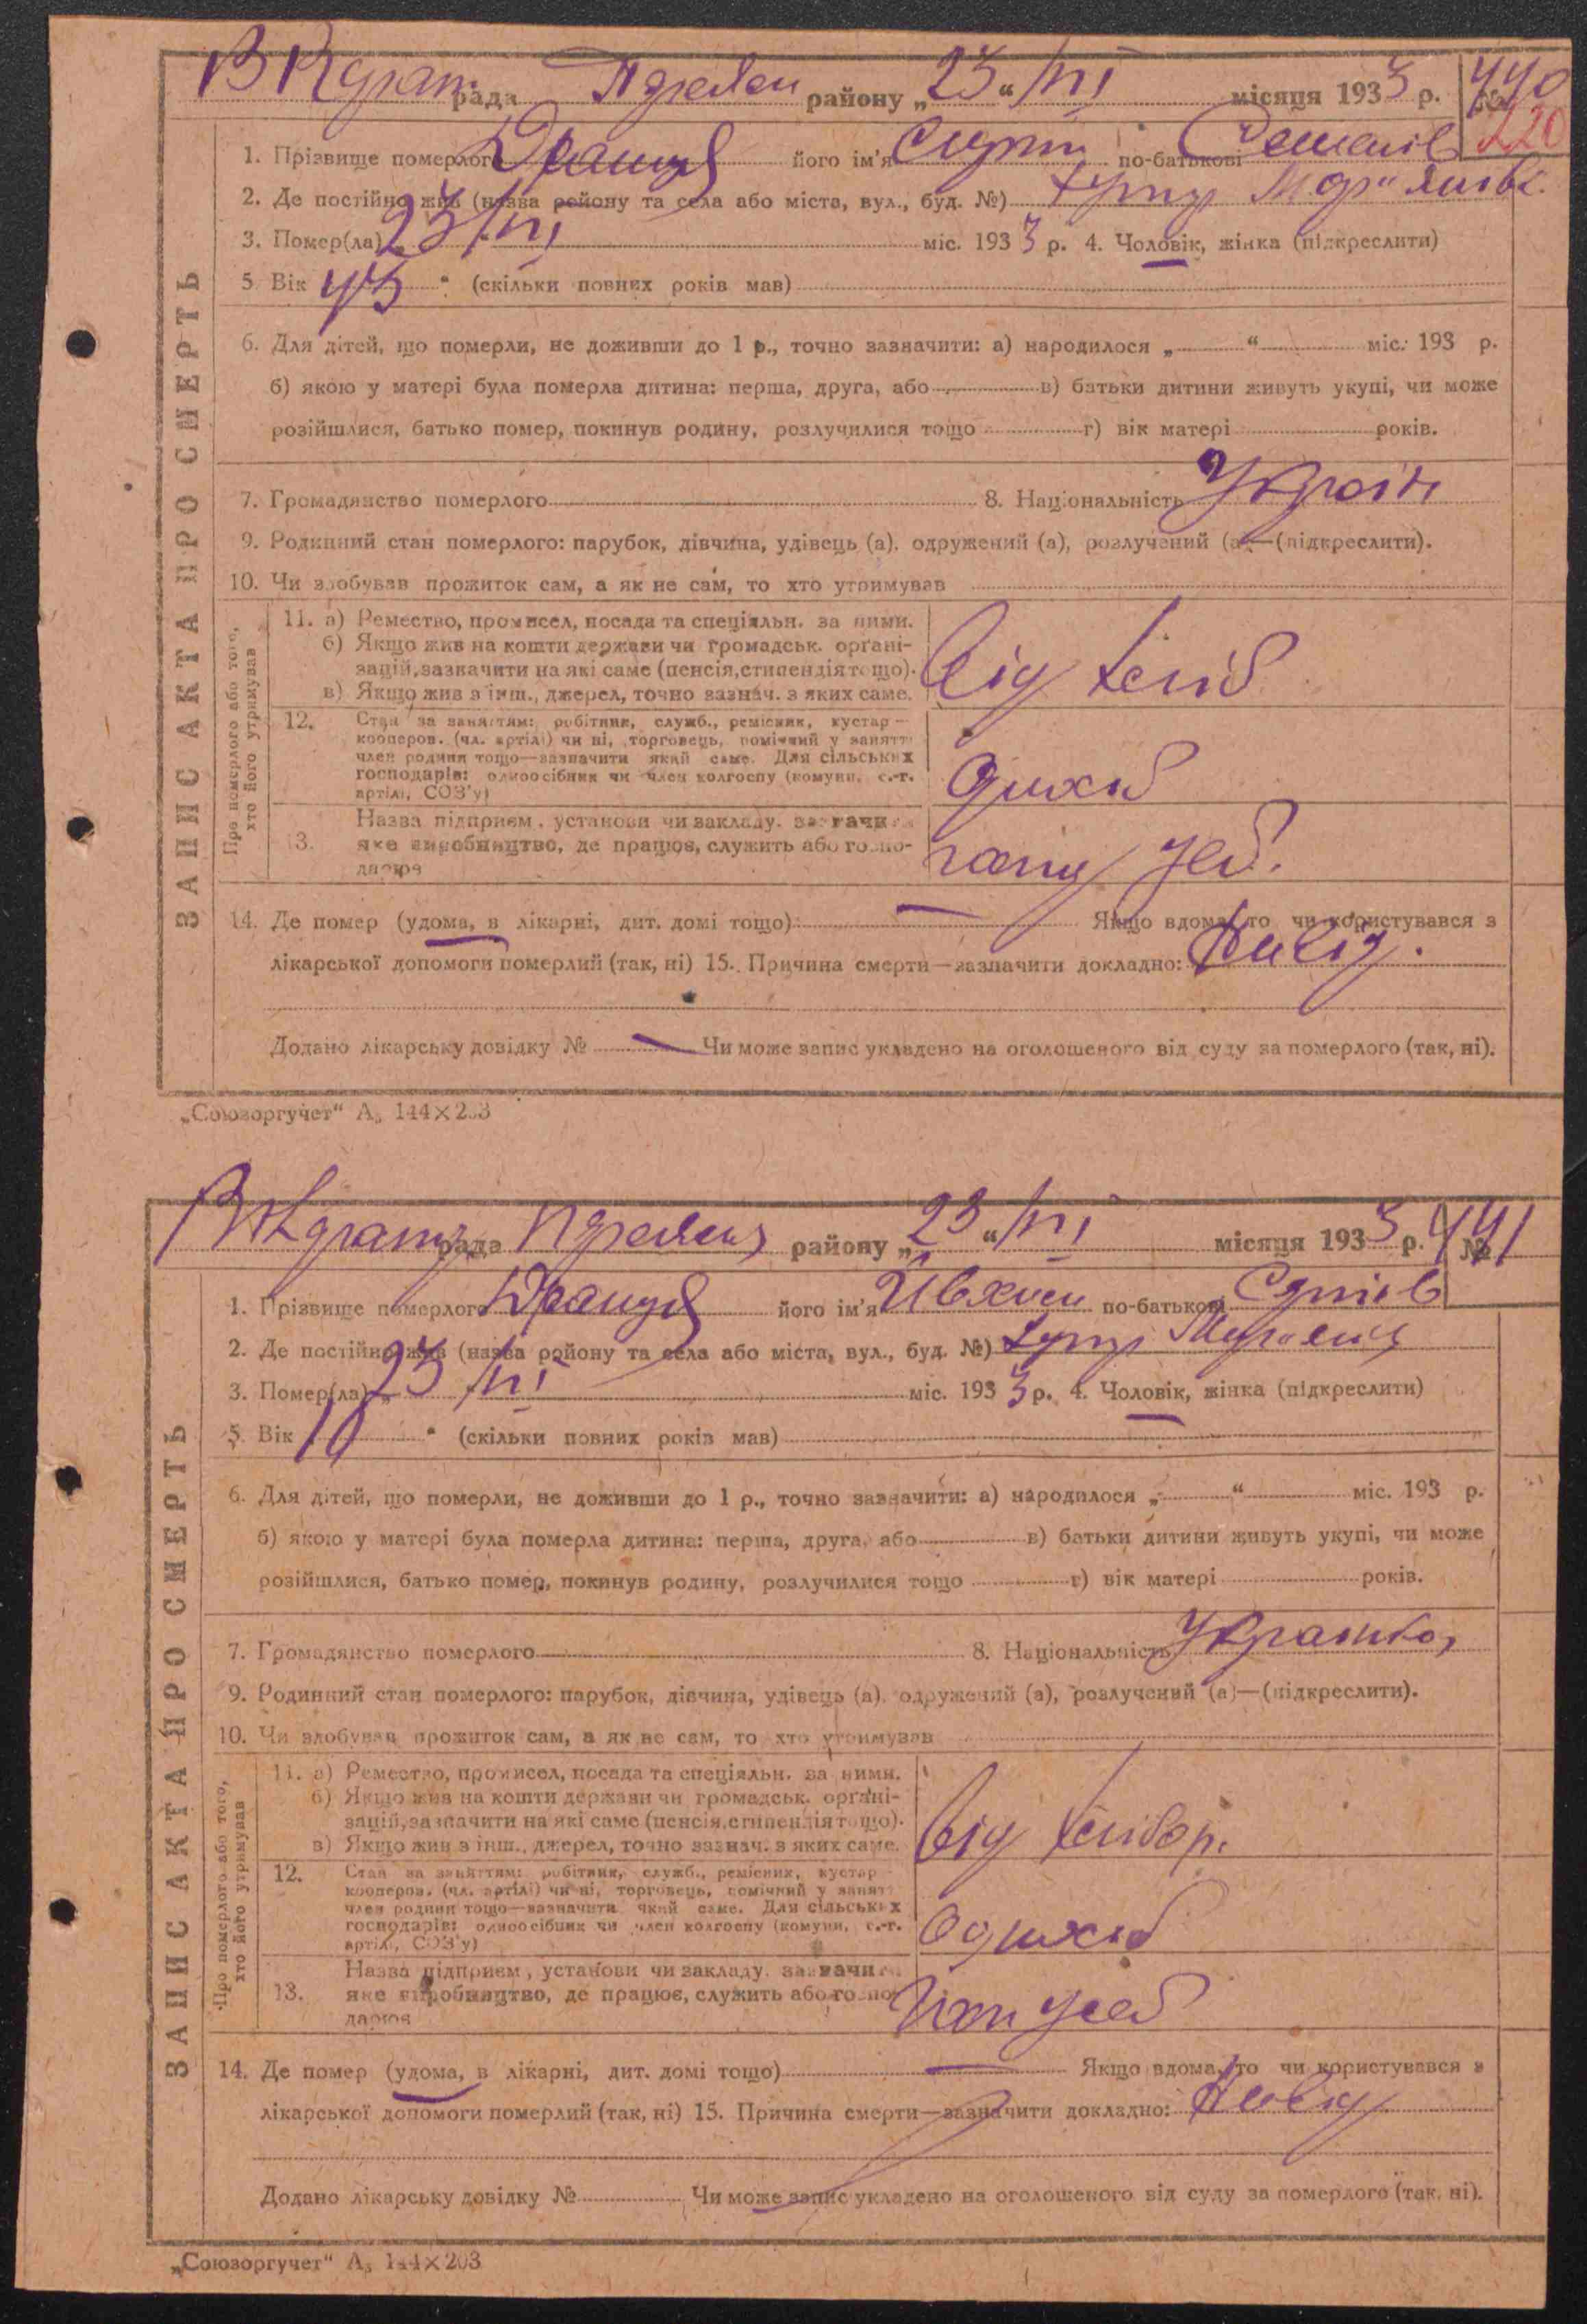 рада району „23“ /VI місяця 1933 р. № 440
220
1. Прізвище померлого його ім'я по-батькові
2. Де постійно жив (назва району та села або міста, вул., буд. №) хутір
3. Помер(ла) „23 /VI міс. 1933 р. 4. Чоловік, жінка (підкреслити)
5. Вік 45 “ (скільки повних років мав)
6. Для дітей, що померли, не доживши до 1 р., точно зазначити: а) народилося „ “ міс. 193 р.
б) якою у матері була померла дитина: перша, друга, або в) батьки дитини живуть укупі, чи може
розійшлися, батько помер, покинув родину, розлучилися тощо г) вік матері років.
7. Громадянство померлого 8. Національність Україн
9. Родинний стан померлого: парубок, дівчина, удівець (а), одружений (а), розлучений (а)—(підкреслити).
10. Чи здобував прожиток сам, а як не сам, то хто утримував
ЗАПИС АКТА ПРО СМЕРТЬ
Про померлого або того,
хто його утримував
11. а) Ремество, промисел, посада та спеціяльн. за ними.
б) Якщо жив на кошти держави чи громадськ. органі-
зацій, зазначити на які саме (пенсія, стипендія тощо).
в) Якщо жив з інш., джерел, точно зазнач. з яких саме.
від
12. Стан за заняттям: робітник, служб., ремісник, кустар—
кооперов. (чл. артілі) чи ні, торговець, помічний у занятті
член родини тощо—зазначити який саме. Для сільських
господарів: одноосібник чи член колгоспу (комуни, с.-г.
артілі, СОЗ'у)
13. Назва підприєм., установи чи закладу, зазначити
яке виробництво, де працює, служить або госпо-
дарює
14. Де помер (удома, в лікарні, дит. домі тощо) — Якщо вдома, то чи користувався з
лікарської допомоги померлий (так, ні) 15. Причина смерти—зазначити докладно:
Додано лікарську довідку № — Чи може запис укладено на оголошеного від суду за померлого (так, ні).
„Союзоргучет“ А₅ 144×203
рада району „23“ /VI місяця 1933 р. № 441
1. Прізвище померлого його ім'я по-батькові
2. Де постійно жив (назва району та села або міста, вул., буд. №) хутір
3. Помер(ла) „23 /VI міс. 1933 р. 4. Чоловік, жінка (підкреслити)
5. Вік 10 “ (скільки повних років мав)
6. Для дітей, що померли, не доживши до 1 р., точно зазначити: а) народилося „ “ міс. 193 р.
б) якою у матері була померла дитина: перша, друга, або в) батьки дитини живуть укупі, чи може
розійшлися, батько помер, покинув родину, розлучилися тощо г) вік матері років.
7. Громадянство померлого 8. Національність
9. Родинний стан померлого: парубок, дівчина, удівець (а), одружений (а), розлучений (а)—(підкреслити).
10. Чи здобував прожиток сам, а як не сам, то хто утримував
ЗАПИС АКТА ПРО СМЕРТЬ
Про померлого або того,
хто його утримував
11. а) Ремество, промисел, посада та спеціяльн. за ними.
б) Якщо жив на кошти держави чи громадськ. органі-
зацій, зазначити на які саме (пенсія, стипендія тощо).
в) Якщо жив з інш., джерел, точно зазнач. з яких саме.
від
12. Стан за заняттям: робітник, служб., ремісник, кустар—
кооперов. (чл. артілі) чи ні, торговець, помічний у занятті
член родини тощо—зазначити який саме. Для сільських
господарів: одноосібник чи член колгоспу (комуни, с.-г.
артілі, СОЗ'у)
13. Назва підприєм., установи чи закладу, зазначити
яке виробництво, де працює, служить або госпо-
дарює
14. Де помер (удома, в лікарні, дит. домі тощо) — Якщо вдома, то чи користувався з
лікарської допомоги померлий (так, ні) 15. Причина смерти—зазначити докладно:
Додано лікарську довідку № Чи може запис укладено на оголошеного від суду за померлого (так, ні).
„Союзоргучет“ А₅ 144×203